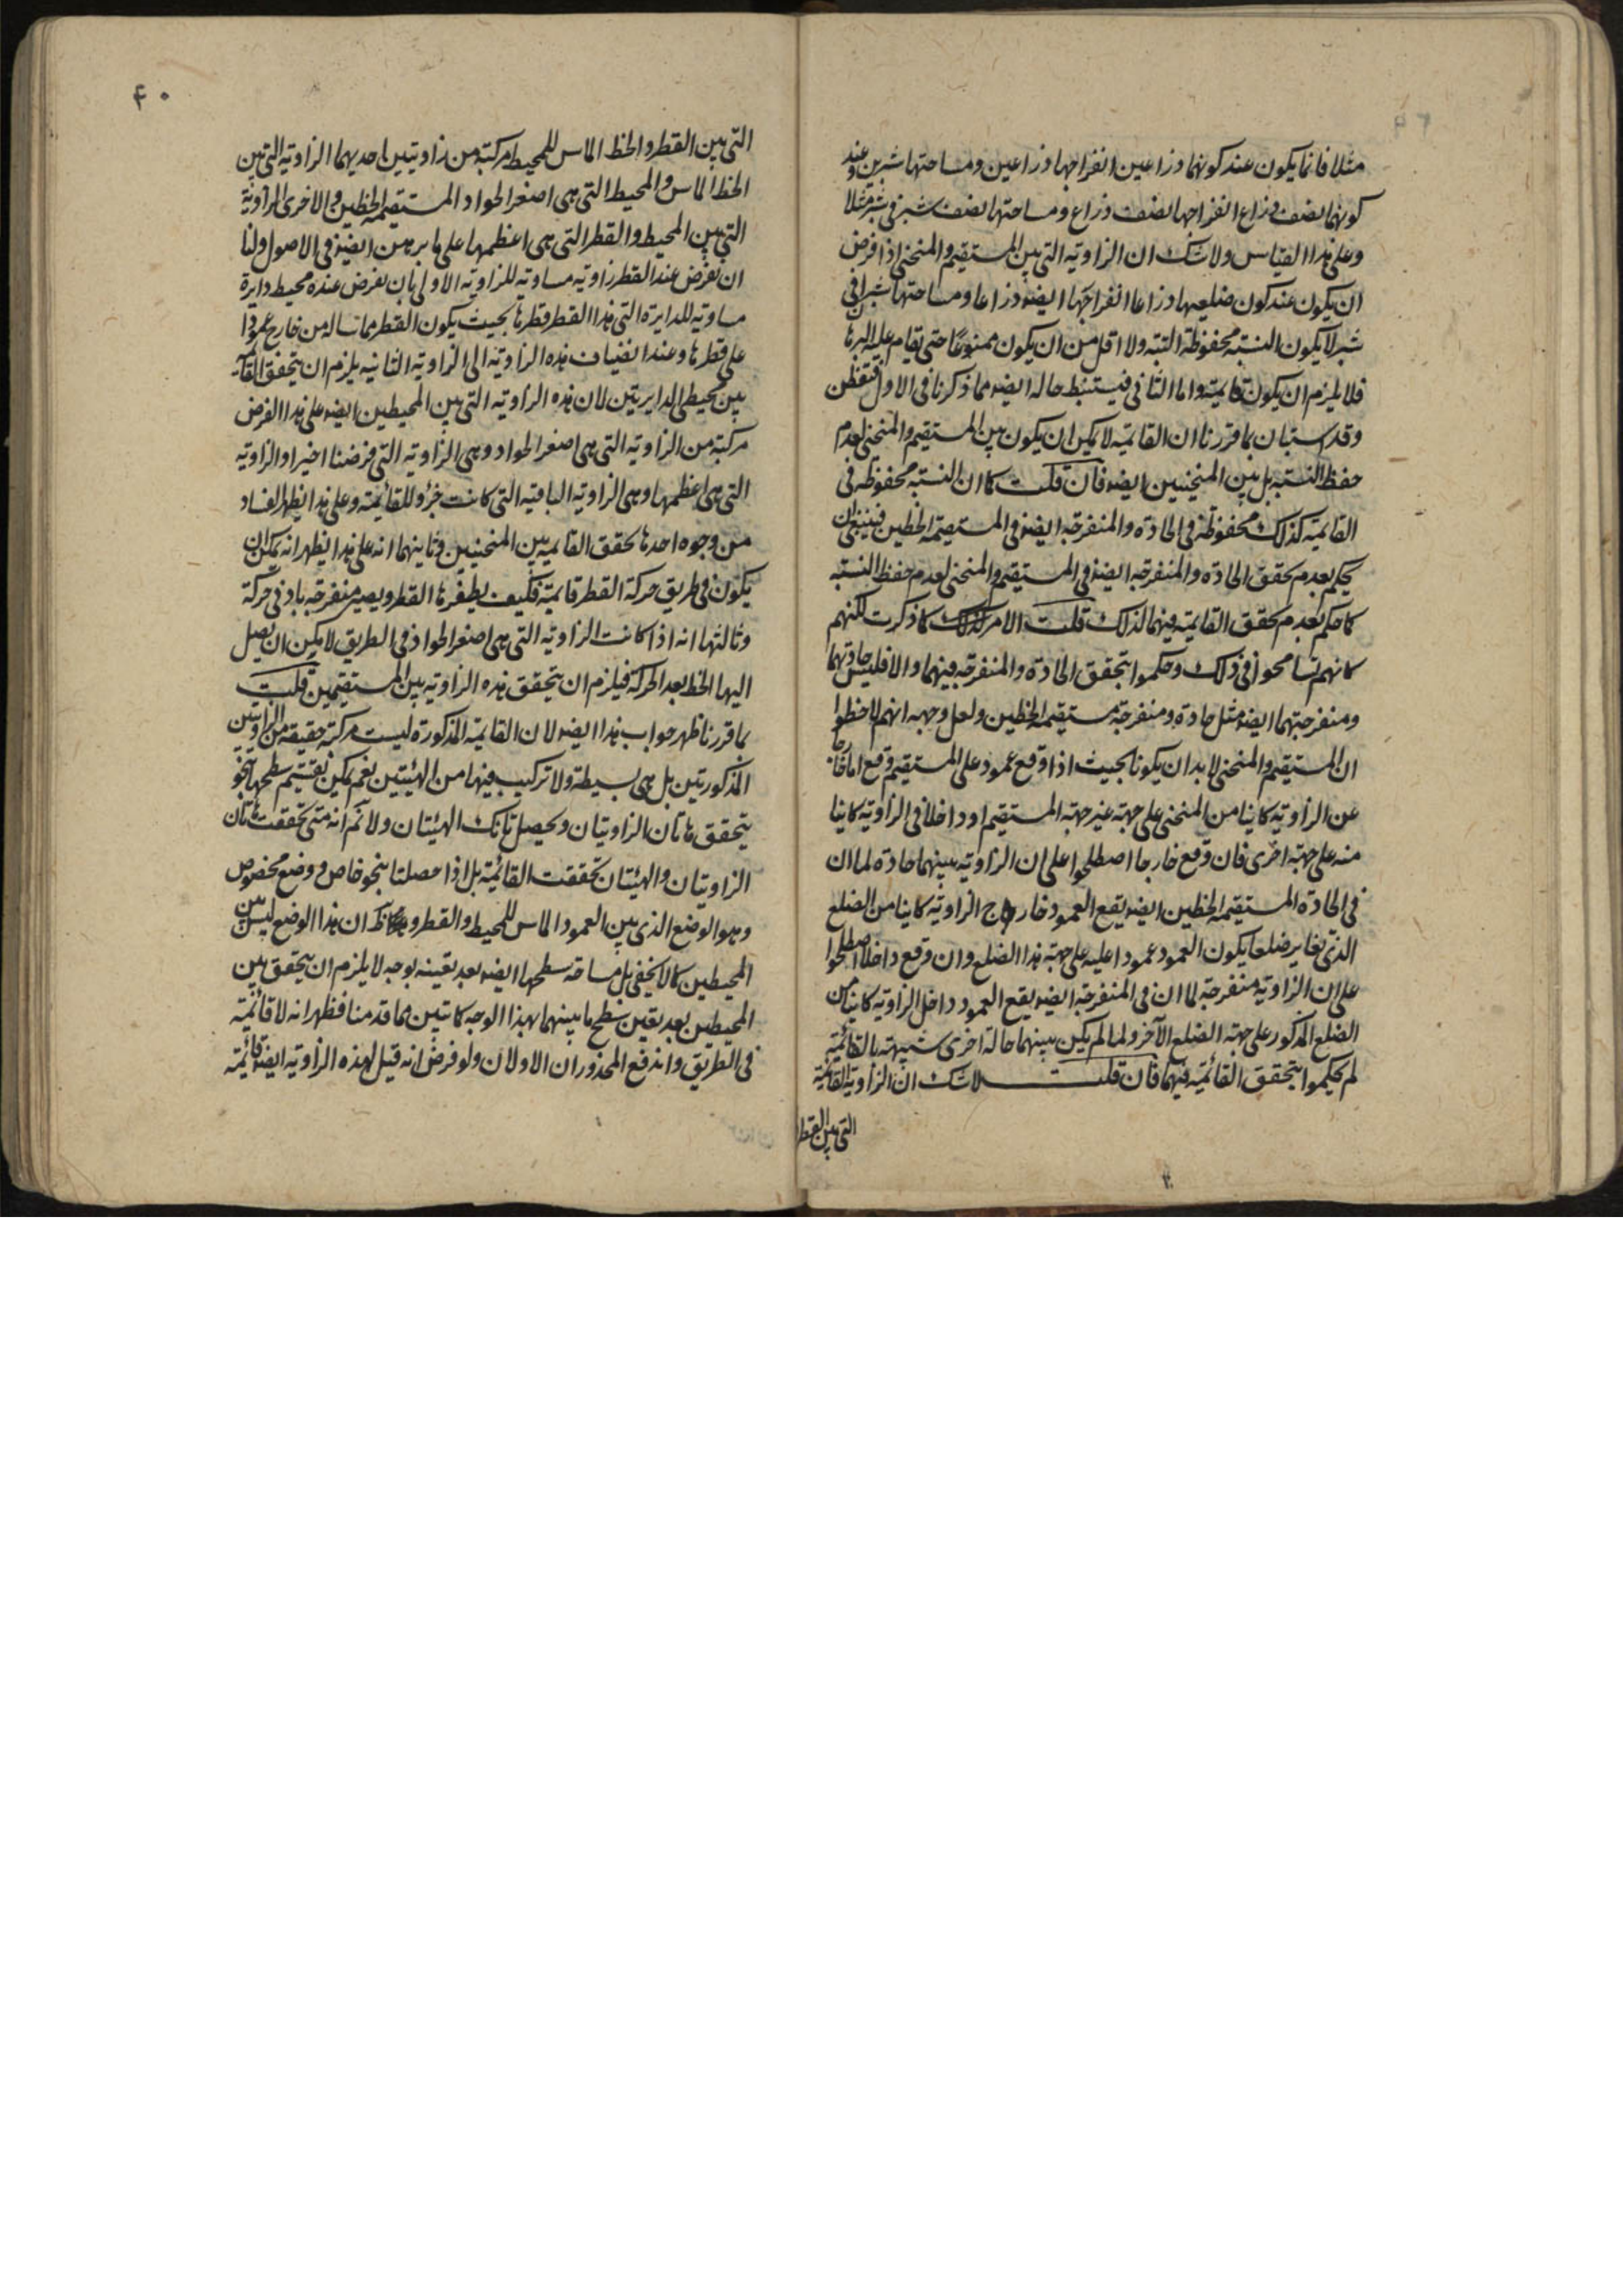 مثلا فانما يكون عند كونهما ذراعين انفراجها ذراعين ومساحتها شبرين وعند
كونهما نصف ذراع انفراجها نصف ذراع ومساحتها نصف شبر في شبر مثلا
وعلى هذا القياس ولا شك ان الزاوية التي بين المستقيم والمنحني اذا فرض
ان يكون عند كون ضلعيها ذراعا انفراجها ايضا ذراعا ومساحتها شبرا في
شبر لا يكون النسبة محفوظة البتة ولا اقل من ان يكون ممنوعا حتى يقام عليه البرهان
فلا يلزم ان يكون قايمة واما الثاني فيستنبط حاله ايضا مما ذكرنا في الاول فتفطن
وقد استبان بما قررنا ان القايمة لا يمكن ان يكون بين المستقيم والمنحني لعدم
حفظ النسبة بل بين المنحنيين ايضا فان قلت كما ان النسبة محفوظة في
القايمة كذلك محفوظة في الحادة والمنفرجة ايضا في المستقيمة الخطين فينبغي ان
يحكم بعدم تحقق الحادة والمنفرجة ايضا في المستقيم والمنحني لعدم حفظ النسبة
كما حكم بعدم تحقق القايمة فيهما لذلك قلت الامر كذلك كما ذكرت لكنهم
كانهم تسامحوا في ذلك وحكموا بتحقق الحادة والمنفرجة فيهما والا فليس حادتهما
ومنفرجتهما ايضا مثل حادة ومنفرجة مستقيمة الخطين ولعل وجهه انهم لاحظوا
ان المستقيم والمنحني لا بد ان يكونا بحيث اذا وقع عمود على المستقيم وقع اما خارجا
عن الزاوية كاينا من المنحني على جهة غير جهة المستقيم او داخلا في الزاوية كاينا
منه على جهة اخرى فان وقع خارجا اصطلحوا على ان الزاوية بينهما حادة لما ان
في الحادة المستقيمة الخطين ايضا يقع العمود خارج الزاوية كاينا من الضلع
الذي يغاير ضلعا يكون العمود عمودا عليه على جهة هذا الضلع وان وقع داخلا اصطلحوا
على ان الزاوية منفرجة لما ان في المنفرجة ايضا يقع العمود داخل الزاوية كاينا من
الضلع المذكور على جهة الضلع الآخر ولما لم يكن بينهما حالة اخرى شبيهة بالقائمة
لم يحكموا بتحقق القائمة فيهما فان قلت لا شك ان الزاوية القائمة
التي بين القطر
٤٠
التي بين القطر والخط المماس للمحيط مركبة من زاويتين احديهما الزاوية التي بين
الخط المماس والمحيط التي هي اصغر الحواد المستقيمة الخطين والاخرى الزاوية
التي بين المحيط والقطر التي هي اعظمها على ما برهن ايضا في الاصول ولنا
ان نفرض عند القطر زاوية مساوية للزاوية الاولى بان نفرض عنده محيط دايرة
مساوية للدايرة التي هذا القطر قطرها بحيث يكون القطر مماسا له من خارج عمودا
على قطرها وعند انضياف هذه الزاوية الى الزاوية الثانية يلزم ان يتحقق القائمة
بين محيطي الدايرتين لان هذه الزاوية التي بين المحيطين ايضا على هذا الفرض
مركبة من الزاوية التي هي اصغر الحواد وهي الزاوية التي فرضنا اخيرا والزاوية
التي هي اعظمها وهي الزاوية الباقية التي كانت جزؤ للقائمة وعلى هذا يظهر الفساد
من وجوه احدها تحقق القايمة بين المنحنيين وثانيهما انه على هذا يظهر انه يمكن ان
يكون في طريق حركة القطر قايمة فكيف يطفرها القطر ويصير منفرجة بادنى حركة
وثالثها انه اذا كانت الزاوية التي هي اصغر الحواد في الطريق لا يمكن ان يصل
اليها الخط بعد الحركة فيلزم ان يتحقق هذه الزاوية بين المستقيمين قلت
بما قررنا ظهر جواب هذا ايضا لان القايمة المذكورة ليست مركبة حقيقة من الزاويتين
المذكورتين بل هي بسيطة ولا تركيب فيها من الهيئتين نعم يمكن تقسيم سطحها بنحو
يتحقق هاتان الزاويتان ويحصل تانك الهيئتان ولا نم انه متى تحققت هاتان
الزاويتان والهيئتان تحققت القائمة بل اذا حصلتا بنحو خاص ووضع مخصوص
وهو الوضع الذي بين العمود المماس للمحيط والقطر و ان هذا الوضع ليس بين
المحيطين كما لا يخفى بل مساحة سطحها ايضا بعد تعينه بوجه لا يلزم ان يتحقق بين
المحيطين بعد تعين سطح ما بينهما بهذا الوجه كما تبين مما قدمنا فظهر انه لا قائمة
في الطريق واندفع المحذوران الاولان ولو فرض انه قيل لهذه الزاوية ايضا قائمة